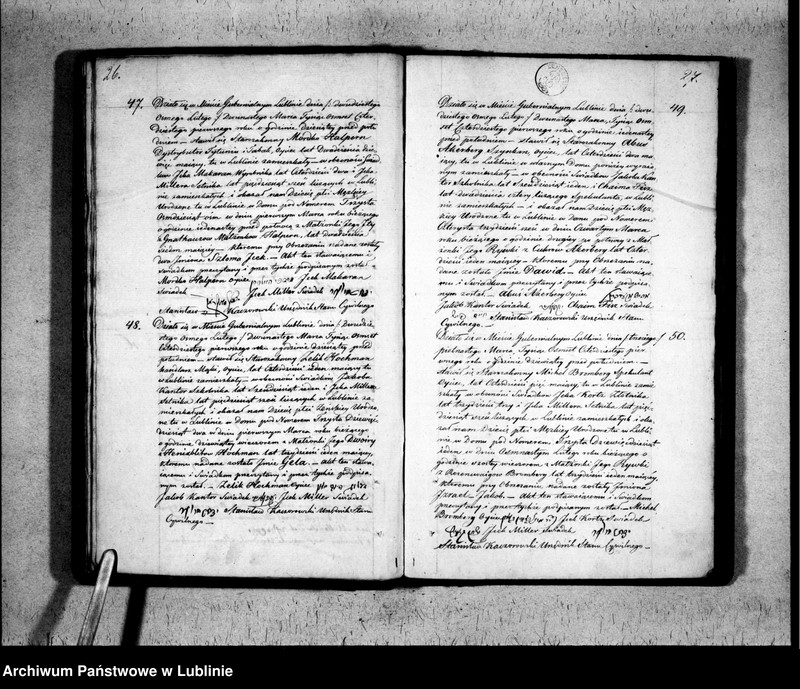 26.
47. Działo się w Mieście Gubernialnym Lublinie dnia dwudziestego
ósmego Lutego / Dwunastego Marca Tysiąc Ośmset Czter-
dziestego pierwszego roku o godzinie dziesiątej przed połu-
dniem — stawił się Starozakonny Mordko Halpern
lat Dwadzieścia
mający, tu w Lublinie zamieszkały — w obecności
Jcka Makaran lat Czterdzieści dwa i Jcka
Millera lat pięćdziesiąt sześć liczących w Lubli-
nie zamieszkałych i okazał nam Dziecię płci Męzkiej
Urodzone tu w Lublinie w domu pod Numerem Trzysta
Ośmdziesiąt w dniu pierwszym Marca roku bieżącego
o godzinie jedenastej przed północą z Małżonki Jego
Halpern, lat dwadzieścia
mającej, — któremu przy Obrzezaniu nadane zostały
dwa Imiona Szloma Jcek. — Akt ten stawającemu i
Świadkom przeczytany i przez tychże podpisanym został —
Mordko Halpern Ojciec Jcek Makaran
Świadek Jcek Miller Świadek
Stanisław Kaczorowski Urzędnik Stanu Cywilnego
48. Działo się w Mieście Gubernialnym Lublinie dnia Dwudzie-
stego Ósmego Lutego / Dwunastego Marca Tysiąc Ośmset
Czterdziestego pierwszego roku o godzinie dziesiątej przed
południem, stawił się Starozakonny Lelik Hochman
handlarz Mąki, Ojciec, lat Czterdzieści mający tu
w Lublinie zamieszkały — w obecności Świadków Jakoba
Kantor Szkolnika lat Sześćdziesiąt jeden i Jcka Millera
lat pięćdziesiąt sześć liczących w Lublinie za-
mieszkałych i okazał nam Dziecię płci Żeńskiej Urodzo-
ne tu w Lublinie w domu pod Numerem Trzysta Dziewięć-
dziesiąt dwa w dniu pierwszym Marca roku bieżącego
o godzinie dziewiątej wieczorem z Małżonki Jego Dwoiry
Hochman lat trzydzieści jeden mającej,
któremu nadane zostało Imie Gela. — Akt ten stawa-
jącemu i Świadkom przeczytany i przez tychże podpisa-
nym został. — Lelik Hochman Ojciec
Jakob Kantor Świadek Jcek Miller Świadek
Stanisław Kaczorowski Urzędnik Stanu
Cywilnego —
27.
49. Działo się w Mieście Gubernialnym Lublinie dnia dwu-
dziestego ósmego Lutego / Dwunastego Marca, Tysiąc Ośm-
set Czterdziestego pierwszego roku o godzinie jedenastej
przed południem — stawił się Starozakonny Abuś
Akerberg Ojciec, lat Czterdzieści dwa ma-
jący, tu w Lublinie w domu wyżej wyrażo-
nym zamieszkały — w obecności Świadków Jakoba Kan-
tor Szkolnika lat Sześćdziesiąt jeden i Chaima
dwadzieścia cztery liczących Spekulanta, w Lubli-
nie zamieszkałych — i okazał nam Dziecię płci Męz-
kiej Urodzone tu w Lublinie w domu pod Numerem
trzydzieści sześć w dniu Czwartym Marca
roku bieżącego o godzinie drugiej po północy z Mał-
żonki Jego Akerberg lat Czter-
dzieści jeden mającej, — któremu przy Obrzezaniu na-
dane zostało Imie Dawid. — Akt ten stawającemu
i Świadkom przeczytany i przez tychże podpisa-
nym został. — Abuś Akerberg Ojciec
Jakob Kantor Świadek Chaim Świadek
Stanisław Kaczorowski Urzędnik Stanu
Cywilnego. —
50. Działo się w Mieście Gubernialnym Lublinie dnia trzeciego /
piętnastego Marca, Tysiąc Ośmset Czterdziestego pier-
wszego roku o godzinie dziesiątej przed południem. —
Stawił się Starozakonny Michel Bromberg Spekulant
Ojciec, lat Czterdzieści pięć mający, tu w Lublinie zamie-
szkały w obecności Świadków Jcka Kortz Złotnika
lat trzydzieści trzy i Jcka Millera lat pięć-
dziesiąt sześć liczących w Lublinie zamieszkałych i oka-
zał nam Dziecię płci Męzkiej Urodzone tu w Lubli-
nie w domu pod Numerem Trzysta Dziewięćdziesiąt
jeden w dniu Ośmnastym Lutego roku bieżącego o
godzinie szóstej wieczorem, z Małżonki Jego Rywki
Bromberg lat trzydzieści jeden mającej,
któremu przy Obrzezaniu nadane zostały Imiona
Jzrael Jakob. — Akt ten stawającemu i Świadkom
przeczytany i przez tychże podpisanym został. — Michel
Bromberg Ojciec Jcek Kortz Świadek
Jcek Miller Świadek
Stanisław Kaczorowski Urzędnik Stanu Cywilnego. —
Archiwum Państwowe w Lublinie